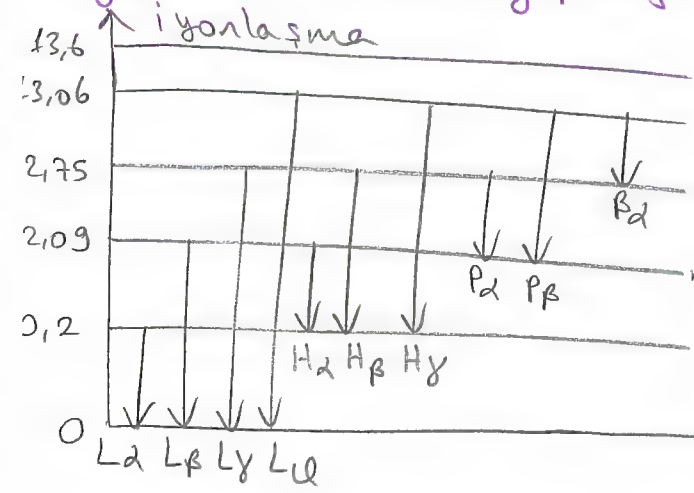 iyonlaşma
13,6
3,06
2,75
2,09
Bα
Pα Pβ
0,2
Hα Hβ Hγ
0
Lα Lβ Lγ Lφ